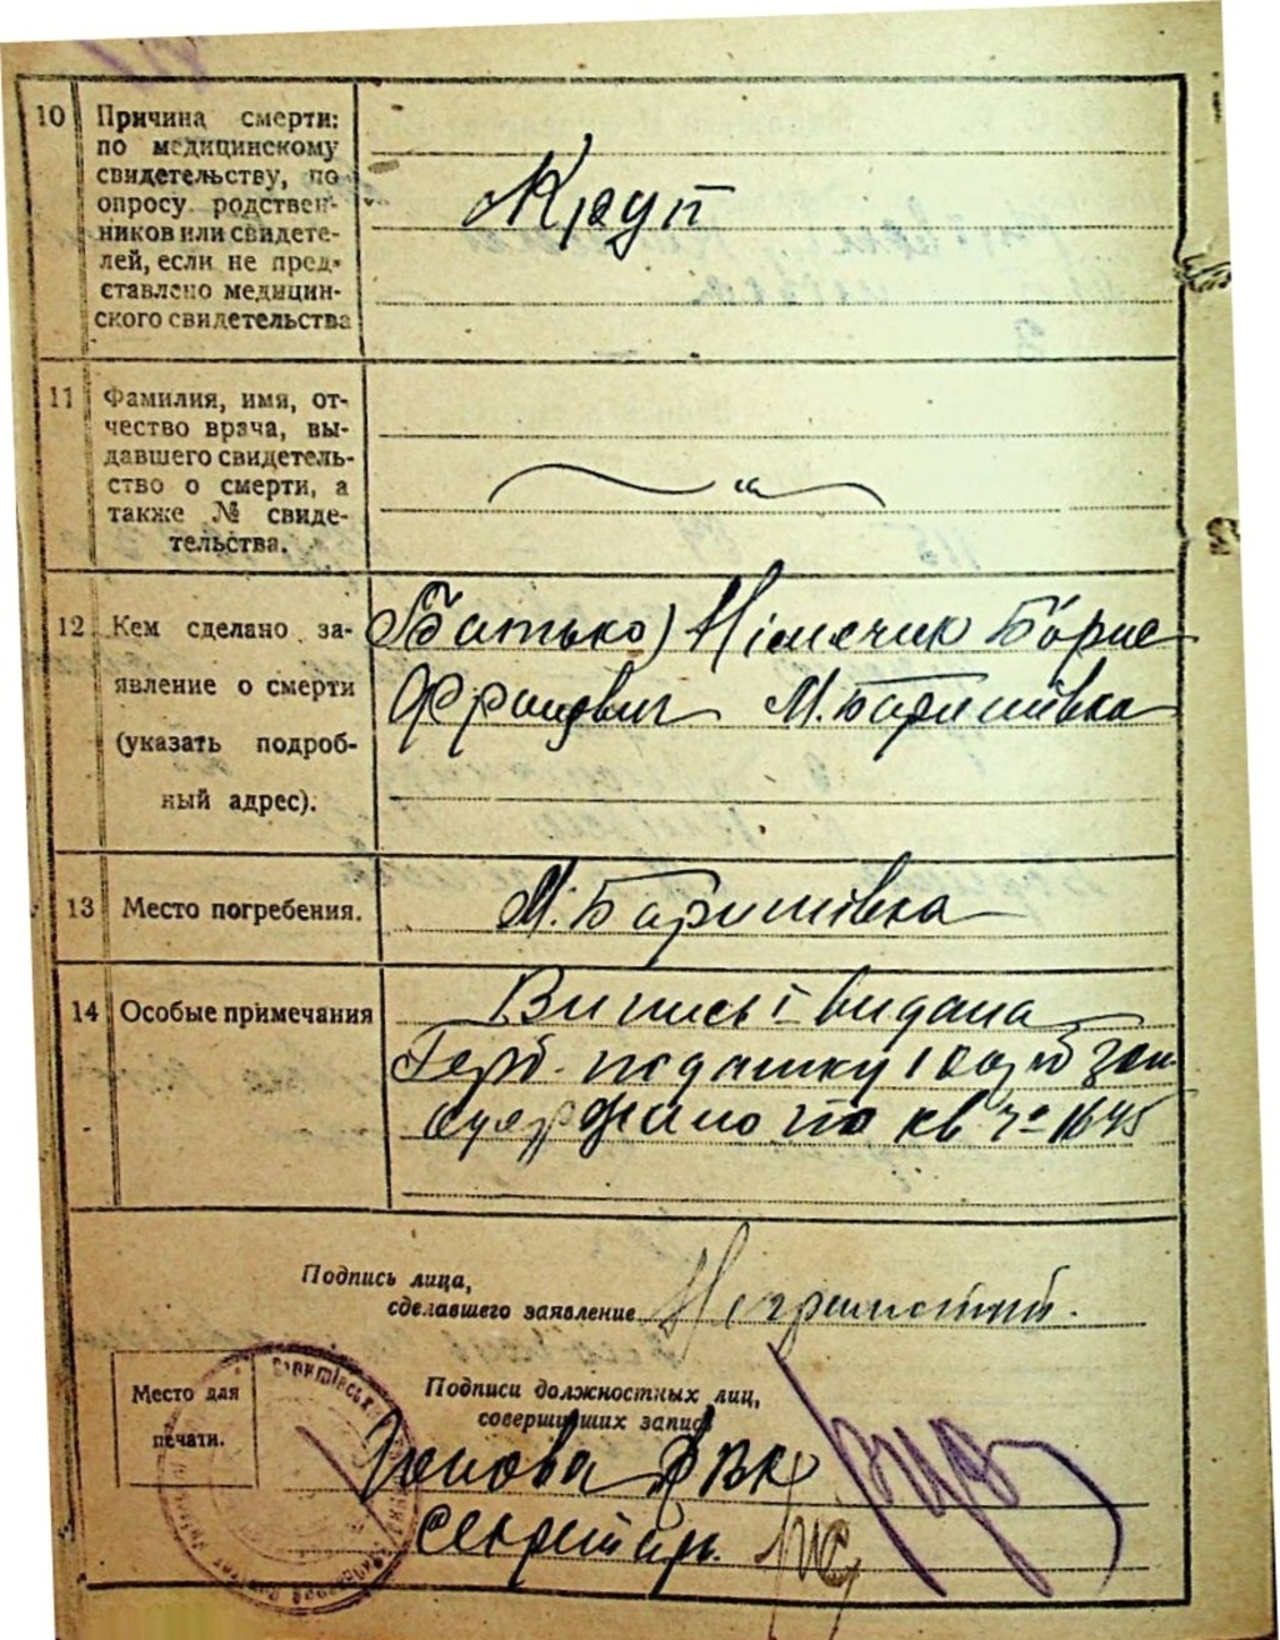 10 Причина смерти:
по медицинскому
свидетельству, по
опросу родствен-
ников или свидете-
лей, если не пред-
ставлено медицин-
ского свидетельства
Круп
11 Фамилия, имя, от-
чество врача, вы-
давшего свидетель-
ство о смерти, а
также № свиде-
тельства.
12 Кем сделано за-
явление о смерти
(указать подроб-
ный адрес).
(Батько) Німечик Борис
М. Баришівка
13 Место погребения.
М. Баришівка
14 Особые примечания
Випись І видана
Герб. податку 1 карб
по кв № 1645
Подпись лица,
сделавшего заявление
Неграмотний.
Место для
печати.
Подписи должностных лиц,
совершивших запись
Голова РВК
Секретарь